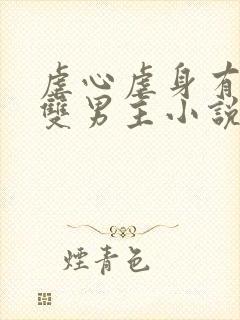 虐心虐身有
雙男主小說
煙青色